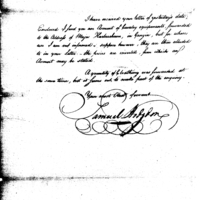 I have received your letter of yesterday's date.
Enclosed I send you an Account of Cavalry equipments, forwarded
to the address of Major
am I am not informed, suppose however, they are those alluded
to in your letter. The prices are annexed, from which an
Account may be settled.
A quantity of Cloathing was forwarded at
the same time, but it forms not to make part of the enquiry.
Your most Obed. Servant
Samuel Hodgdon